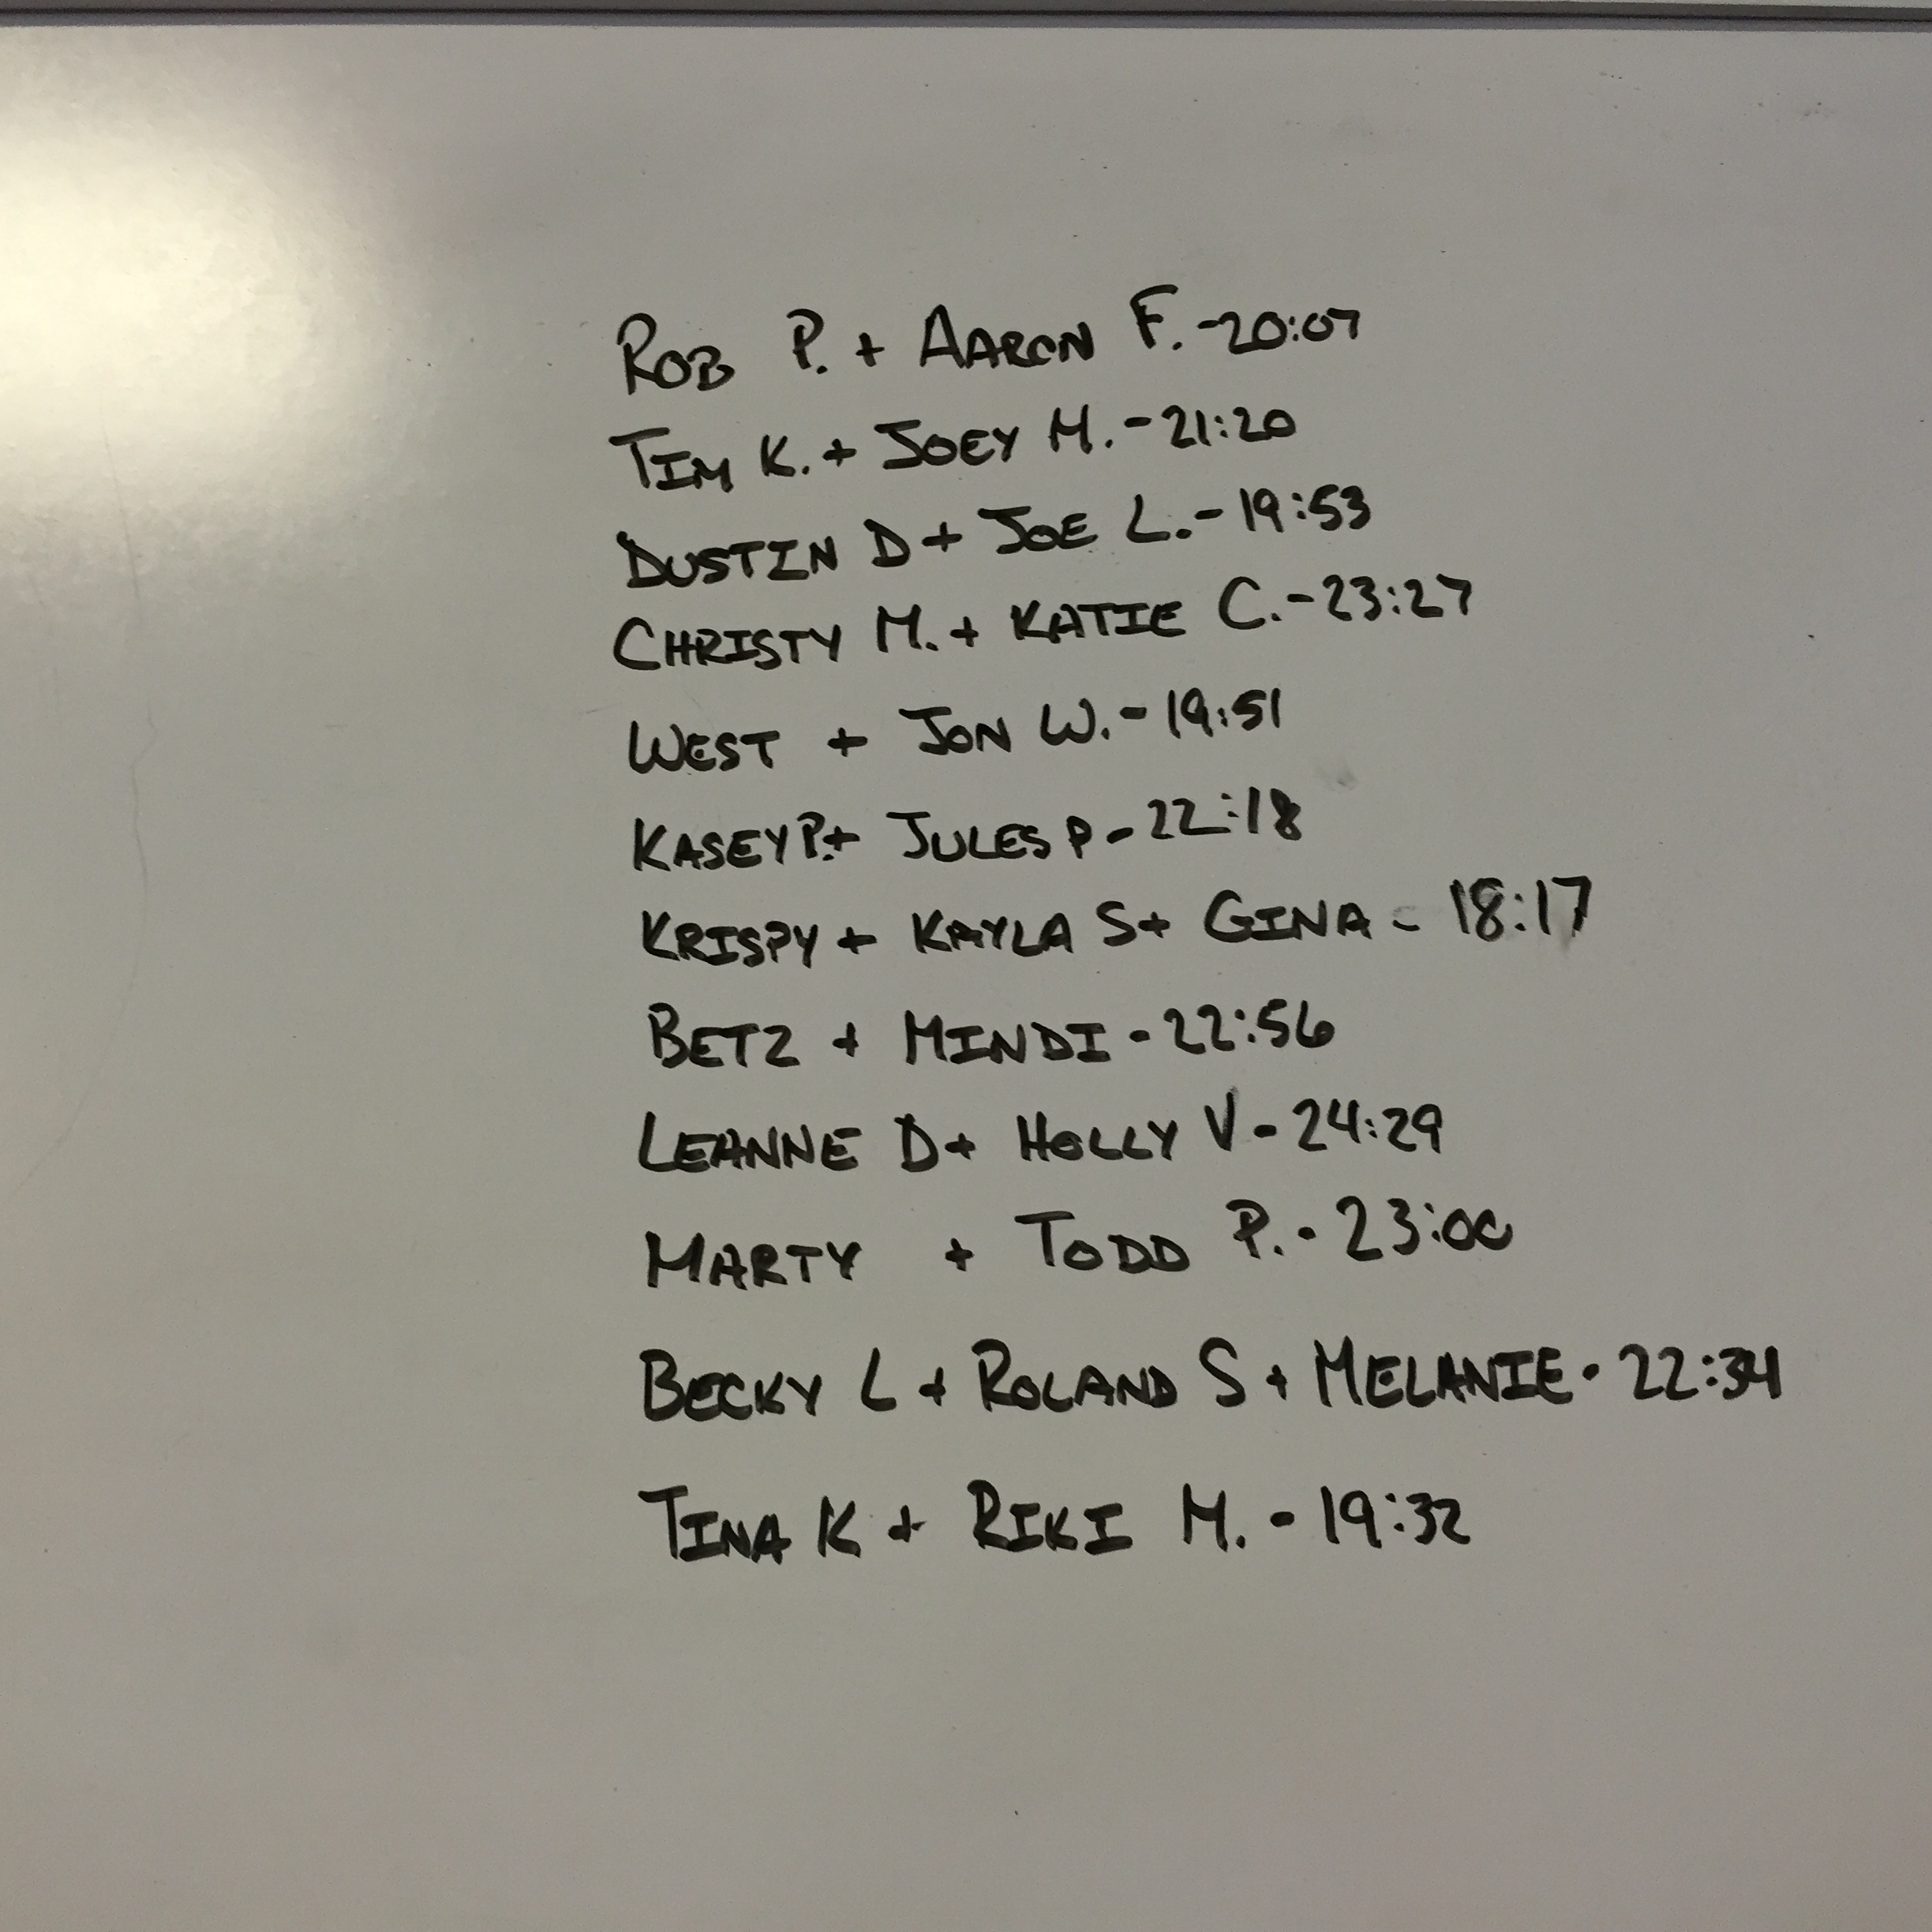 ROB P. + AARON F. - 20:07
TIM K. + JOEY M. - 21:20
DUSTIN D + JOE L. - 19:53
CHRISTY M. + KATIE C. - 23:27
WEST + JON W. - 19:51
KASEY P. + JULES P - 22:18
KRISPY + KAYLA S + GINA - 18:17
BETZ + MINDI - 22:56
LEANNE D + HOLLY V - 24:29
MARTY + TODD P. - 23:00
BECKY L + ROLAND S + MELANIE - 22:34
TINA K + RIKI M. - 19:32